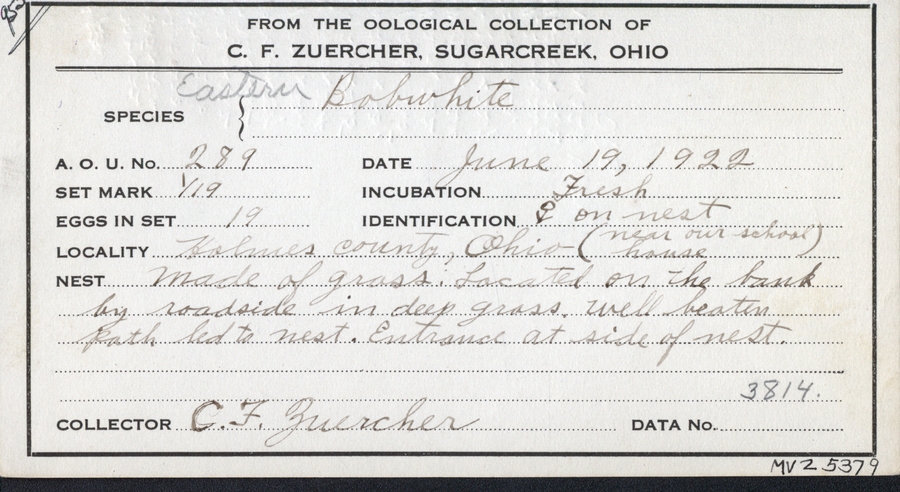 FROM THE OOLOGICAL COLLECTION OF
C. F. ZUERCHER, SUGARCREEK, OHIO
SPECIES Eastern Bobwhite
A. O. U. No. 289 DATE June 19, 1922
SET MARK 1/19 INCUBATION Fresh
EGGS IN SET 19 IDENTIFICATION ♀ on nest
LOCALITY Holmes county, Ohio (near our school house)
NEST Made of grass. Located on the bank
by roadside in deep grass. Well beaten
path led to nest. Entrance at side of nest.
3814.
COLLECTOR C. F. Zuercher DATA No.
MVZ 5379